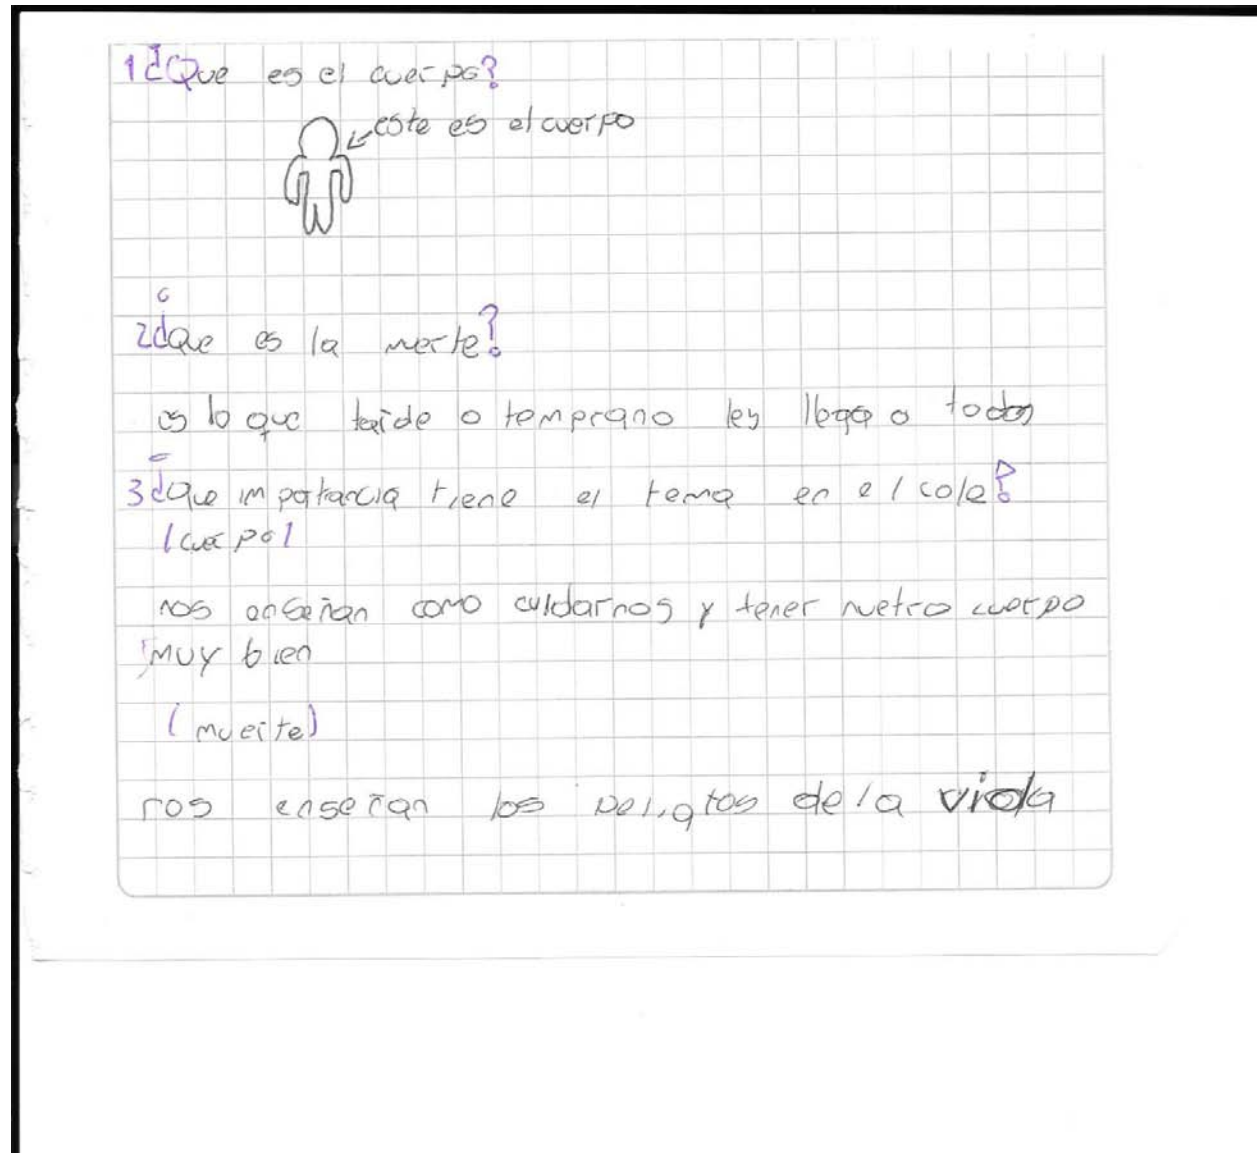 1 ¿Que es el cuerpo?
este es el cuerpo
2 ¿Que es la merte?
es lo que tarde o temprano les llega a todos
3 ¿Que importancia tiene el tema en el cole?
(cuerpo)
nos enseñan como cuidarnos y tener nuetro cuerpo
muy bien
(muerte)
nos enseñan los peligros de la vida